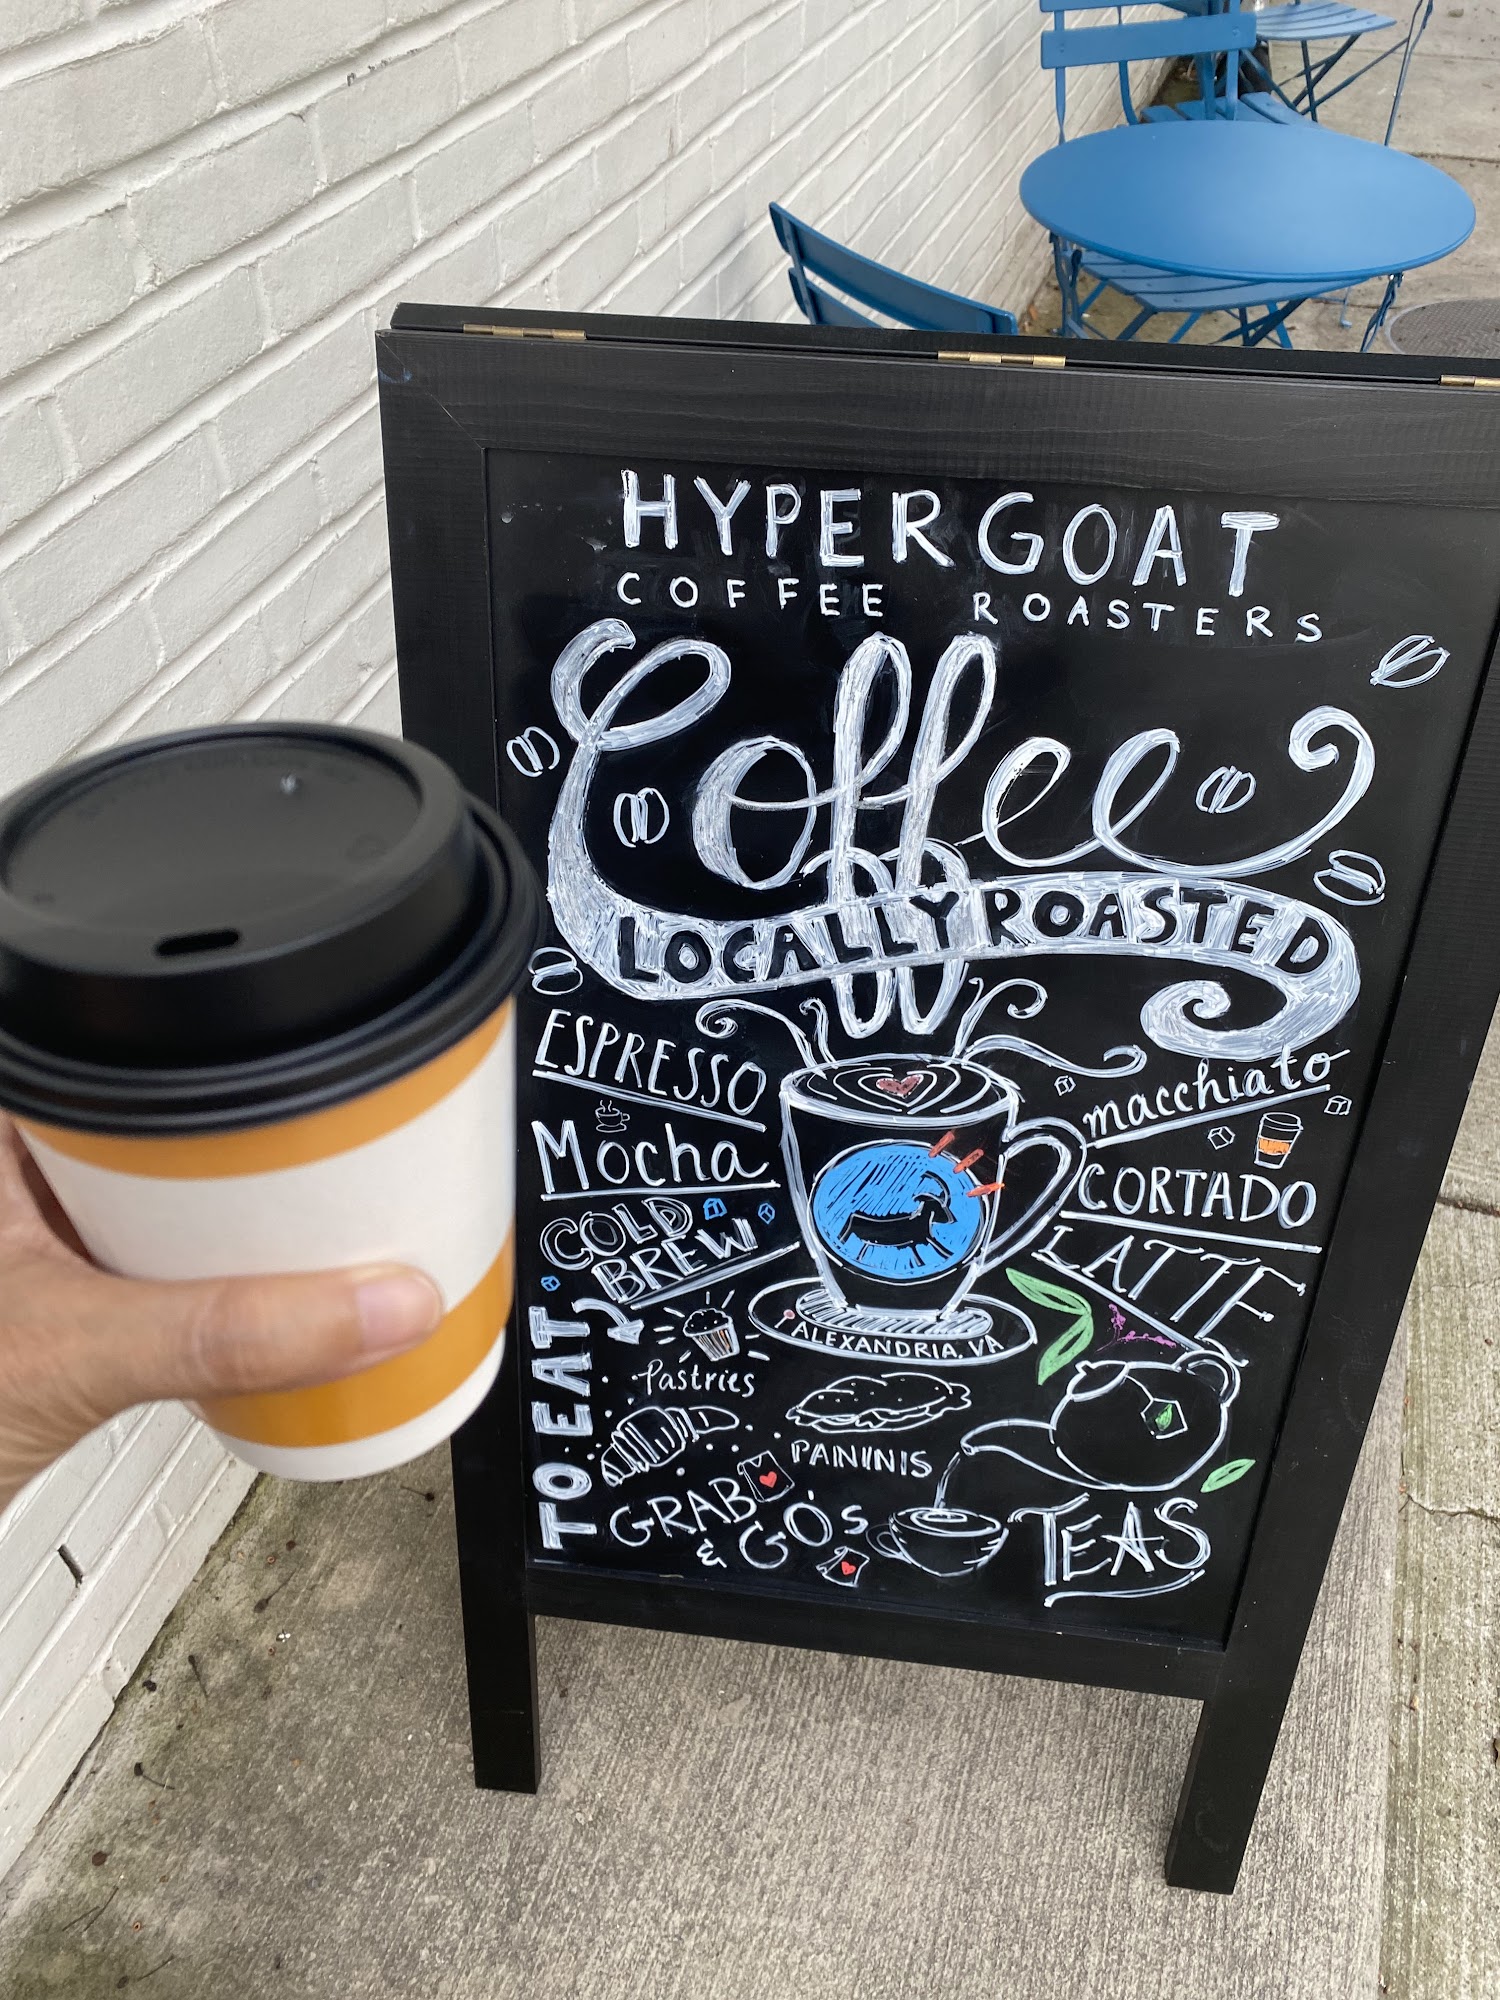 HYPERGOAT
COFFEE ROASTERS
Coffee
LOCALLY ROASTED
ESPRESSO
macchiato
Mocha
CORTADO
COLD
BREW
LATTE
ALEXANDRIA, VA
TO EAT
Pastries
PANINIS
GRAB
& GO'S
TEAS